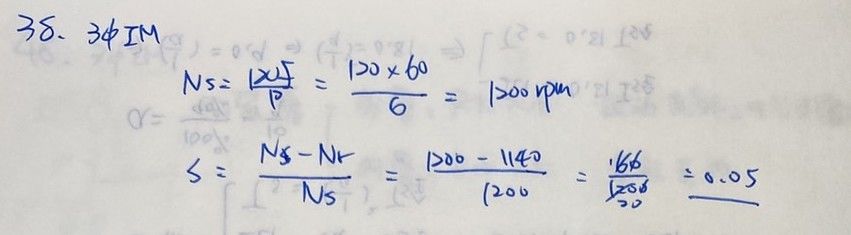 38. 3φIM
Ns = 120f/P = 120×60/6 = 1200 rpm
S = Ns-Nr/Ns = 1200-1140/1200 = 60/1200 20 = 0.05